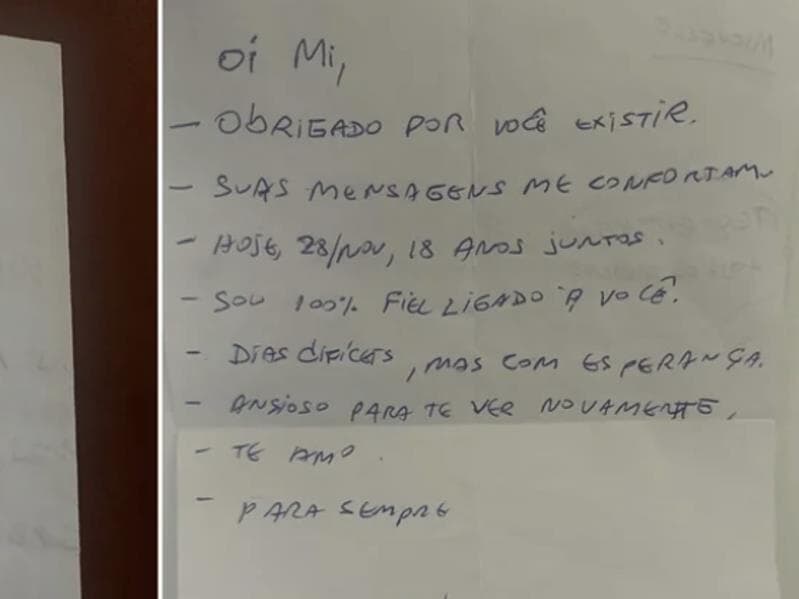 Oi Mi,
- OBRIGADO POR VOCÊ EXISTIR.
- SUAS MENSAGENS ME CONFORTAM.
- HOJE, 28/NOV, 18 ANOS JUNTOS.
- SOU 100% FIEL LIGADO À VOCÊ.
- DIAS DIFÍCEIS, MAS COM ESPERANÇA.
- ANSIOSO PARA TE VER NOVAMENTE,
- TE AMO.
- PARA SEMPRE